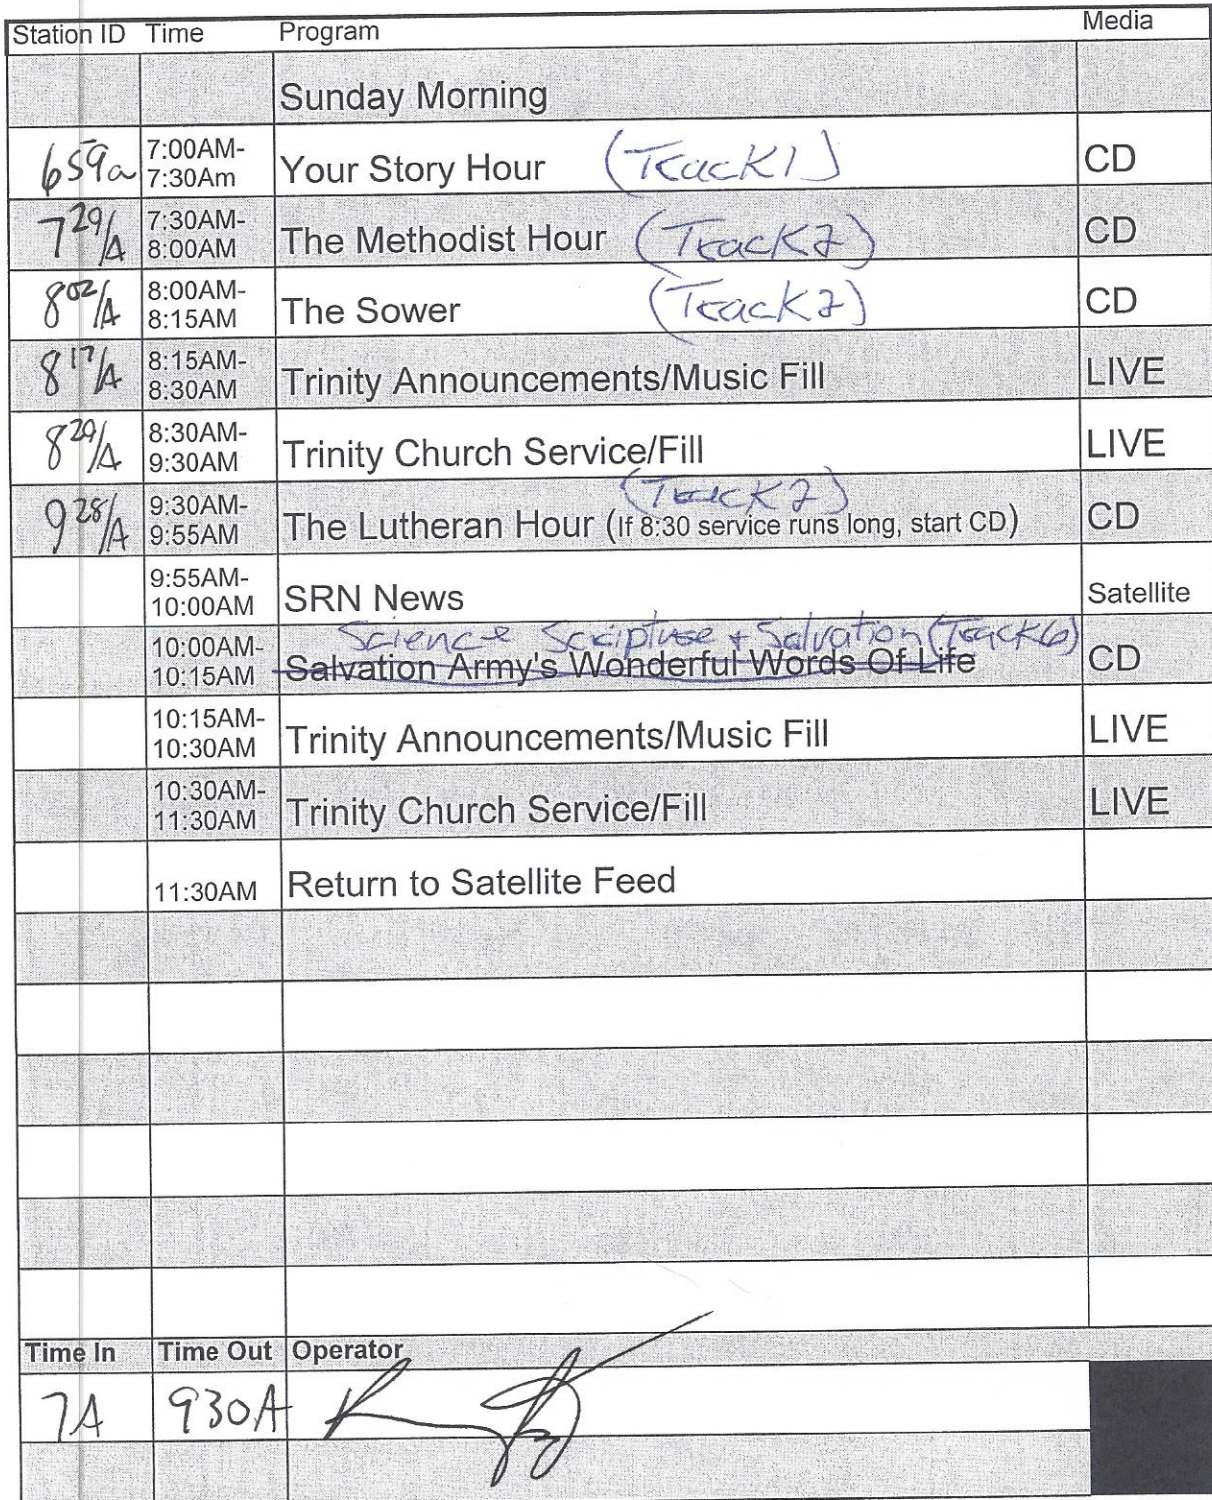 Station ID Time Program Media
Sunday Morning
659a 7:00AM-7:30Am Your Story Hour (Track 1) CD
7 29/A 7:30AM-8:00AM The Methodist Hour (Track 2) CD
8 02/A 8:00AM-8:15AM The Sower (Track 2) CD
8 17/A 8:15AM-8:30AM Trinity Announcements/Music Fill LIVE
8 29/A 8:30AM-9:30AM Trinity Church Service/Fill LIVE
(Track 2)
9 28/A 9:30AM-9:55AM The Lutheran Hour (If 8:30 service runs long, start CD) CD
9:55AM-10:00AM SRN News Satellite
Science Scripture + Salvation (Track 6)
10:00AM-10:15AM Salvation Army's Wonderful Words Of Life CD
10:15AM-10:30AM Trinity Announcements/Music Fill LIVE
10:30AM-11:30AM Trinity Church Service/Fill LIVE
11:30AM Return to Satellite Feed
Time In Time Out Operator
7A 930A